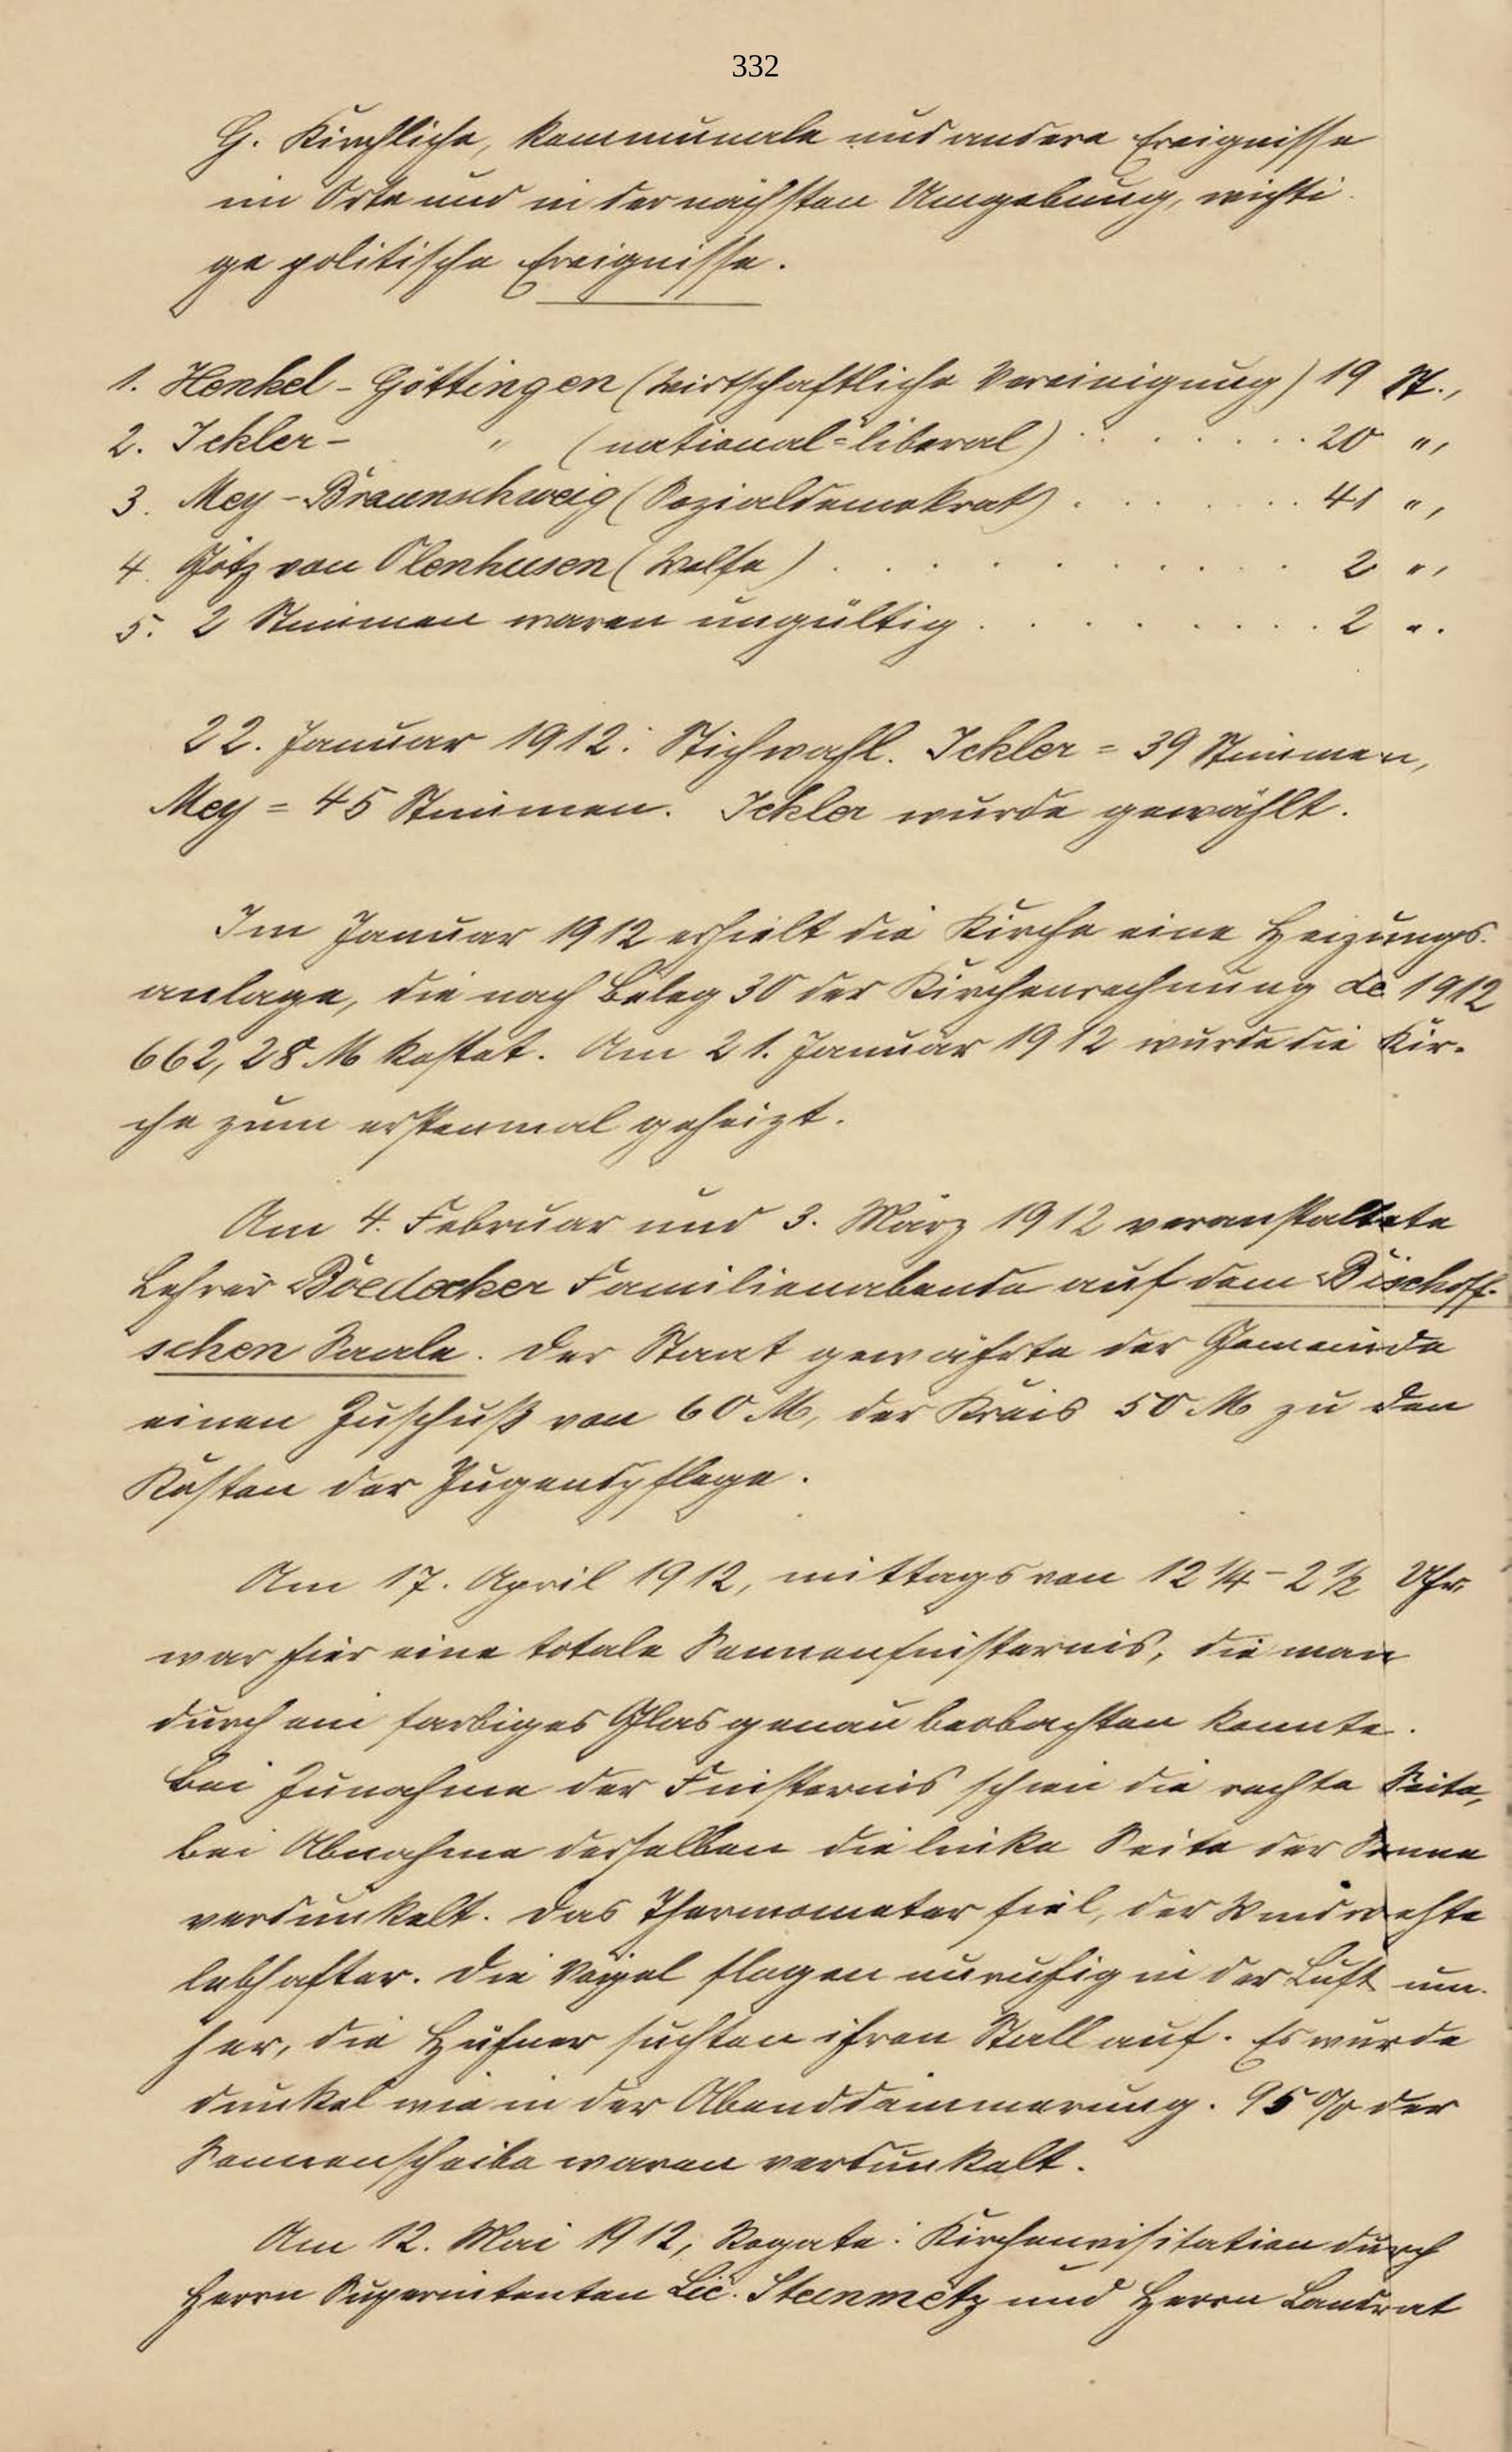 332
G. Kirchliche, kommunale und andere Ereignisse
im Orte und in der nächsten Umgebung, wichti-
ge politische Ereignisse.
1. Henkel - Göttingen (Wirtschaftliche Vereinigung) 19 St.,
2. Ickler - " (national-liberal) . . . . . . 20 ",
3. Mey - Braunschweig (Sozialdemokrat) . . . . . . 41 ",
4. Götz von Olenhusen (Welfe) . . . . . . . . . 2 ",
5. 2 Stimmen waren ungültig . . . . . . . . 2 ".
22. Januar 1912: Stichwahl. Ickler = 39 Stimmen,
Mey = 45 Stimmen. Ickler wurde gewählt.
Im Januar 1912 erhielt die Kirche eine Heizungs-
anlage, die nach Beleg 30 der Kirchenrechnung de 1912
662,28 M kostet. Am 21. Januar 1912 wurde die Kir-
che zum erstenmal geheizt.
Am 4. Februar und 3. März 1912 veranstaltete
Lehrer Boedecker Familienabende auf dem Bischoff-
schen Saale. Der Staat gewährte der Gemeinde
einen Zuschuß von 60 M, der Kreis 50 M zu den
Kosten der Jugendpflege.
Am 17. April 1912, mittags von 12 1/4 - 2 1/2 Uhr
war hier eine totale Sonnenfinsternis, die man
durch ein farbiges Glas genau beobachten konnte.
Bei Zunahme der Finsternis schien die rechte Seite,
bei Abnahme derselben die linke Seite der Sonne
verdunkelt. Das Thermometer fiel, der Wind wehte
lebhafter. Die Vögel flogen unruhig in der Luft um-
her, die Hühner suchten ihren Stall auf. Es wurde
dunkel wie in der Abenddämmerung. 95 % der
Sonnenscheibe waren verdunkelt.
Am 12. Mai 1912, Rogate: Kirchenvisitation durch
Herrn Superintenten Lic. Steinmetz und Herrn Landrat